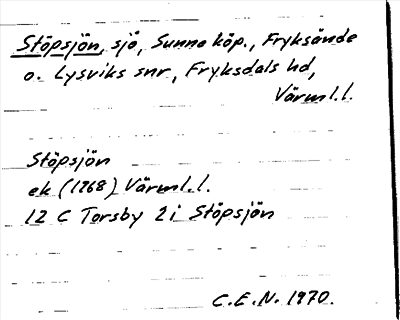 Stöpsjön, sjö, Sunne köp., Fryksände
o. Lysviks snr, Fryksdals hd,
Värml. l.
Stöpsjön
ek (1968) Värml. l.
12 C Torsby 2 i Stöpsjön
C.E.N. 1970.